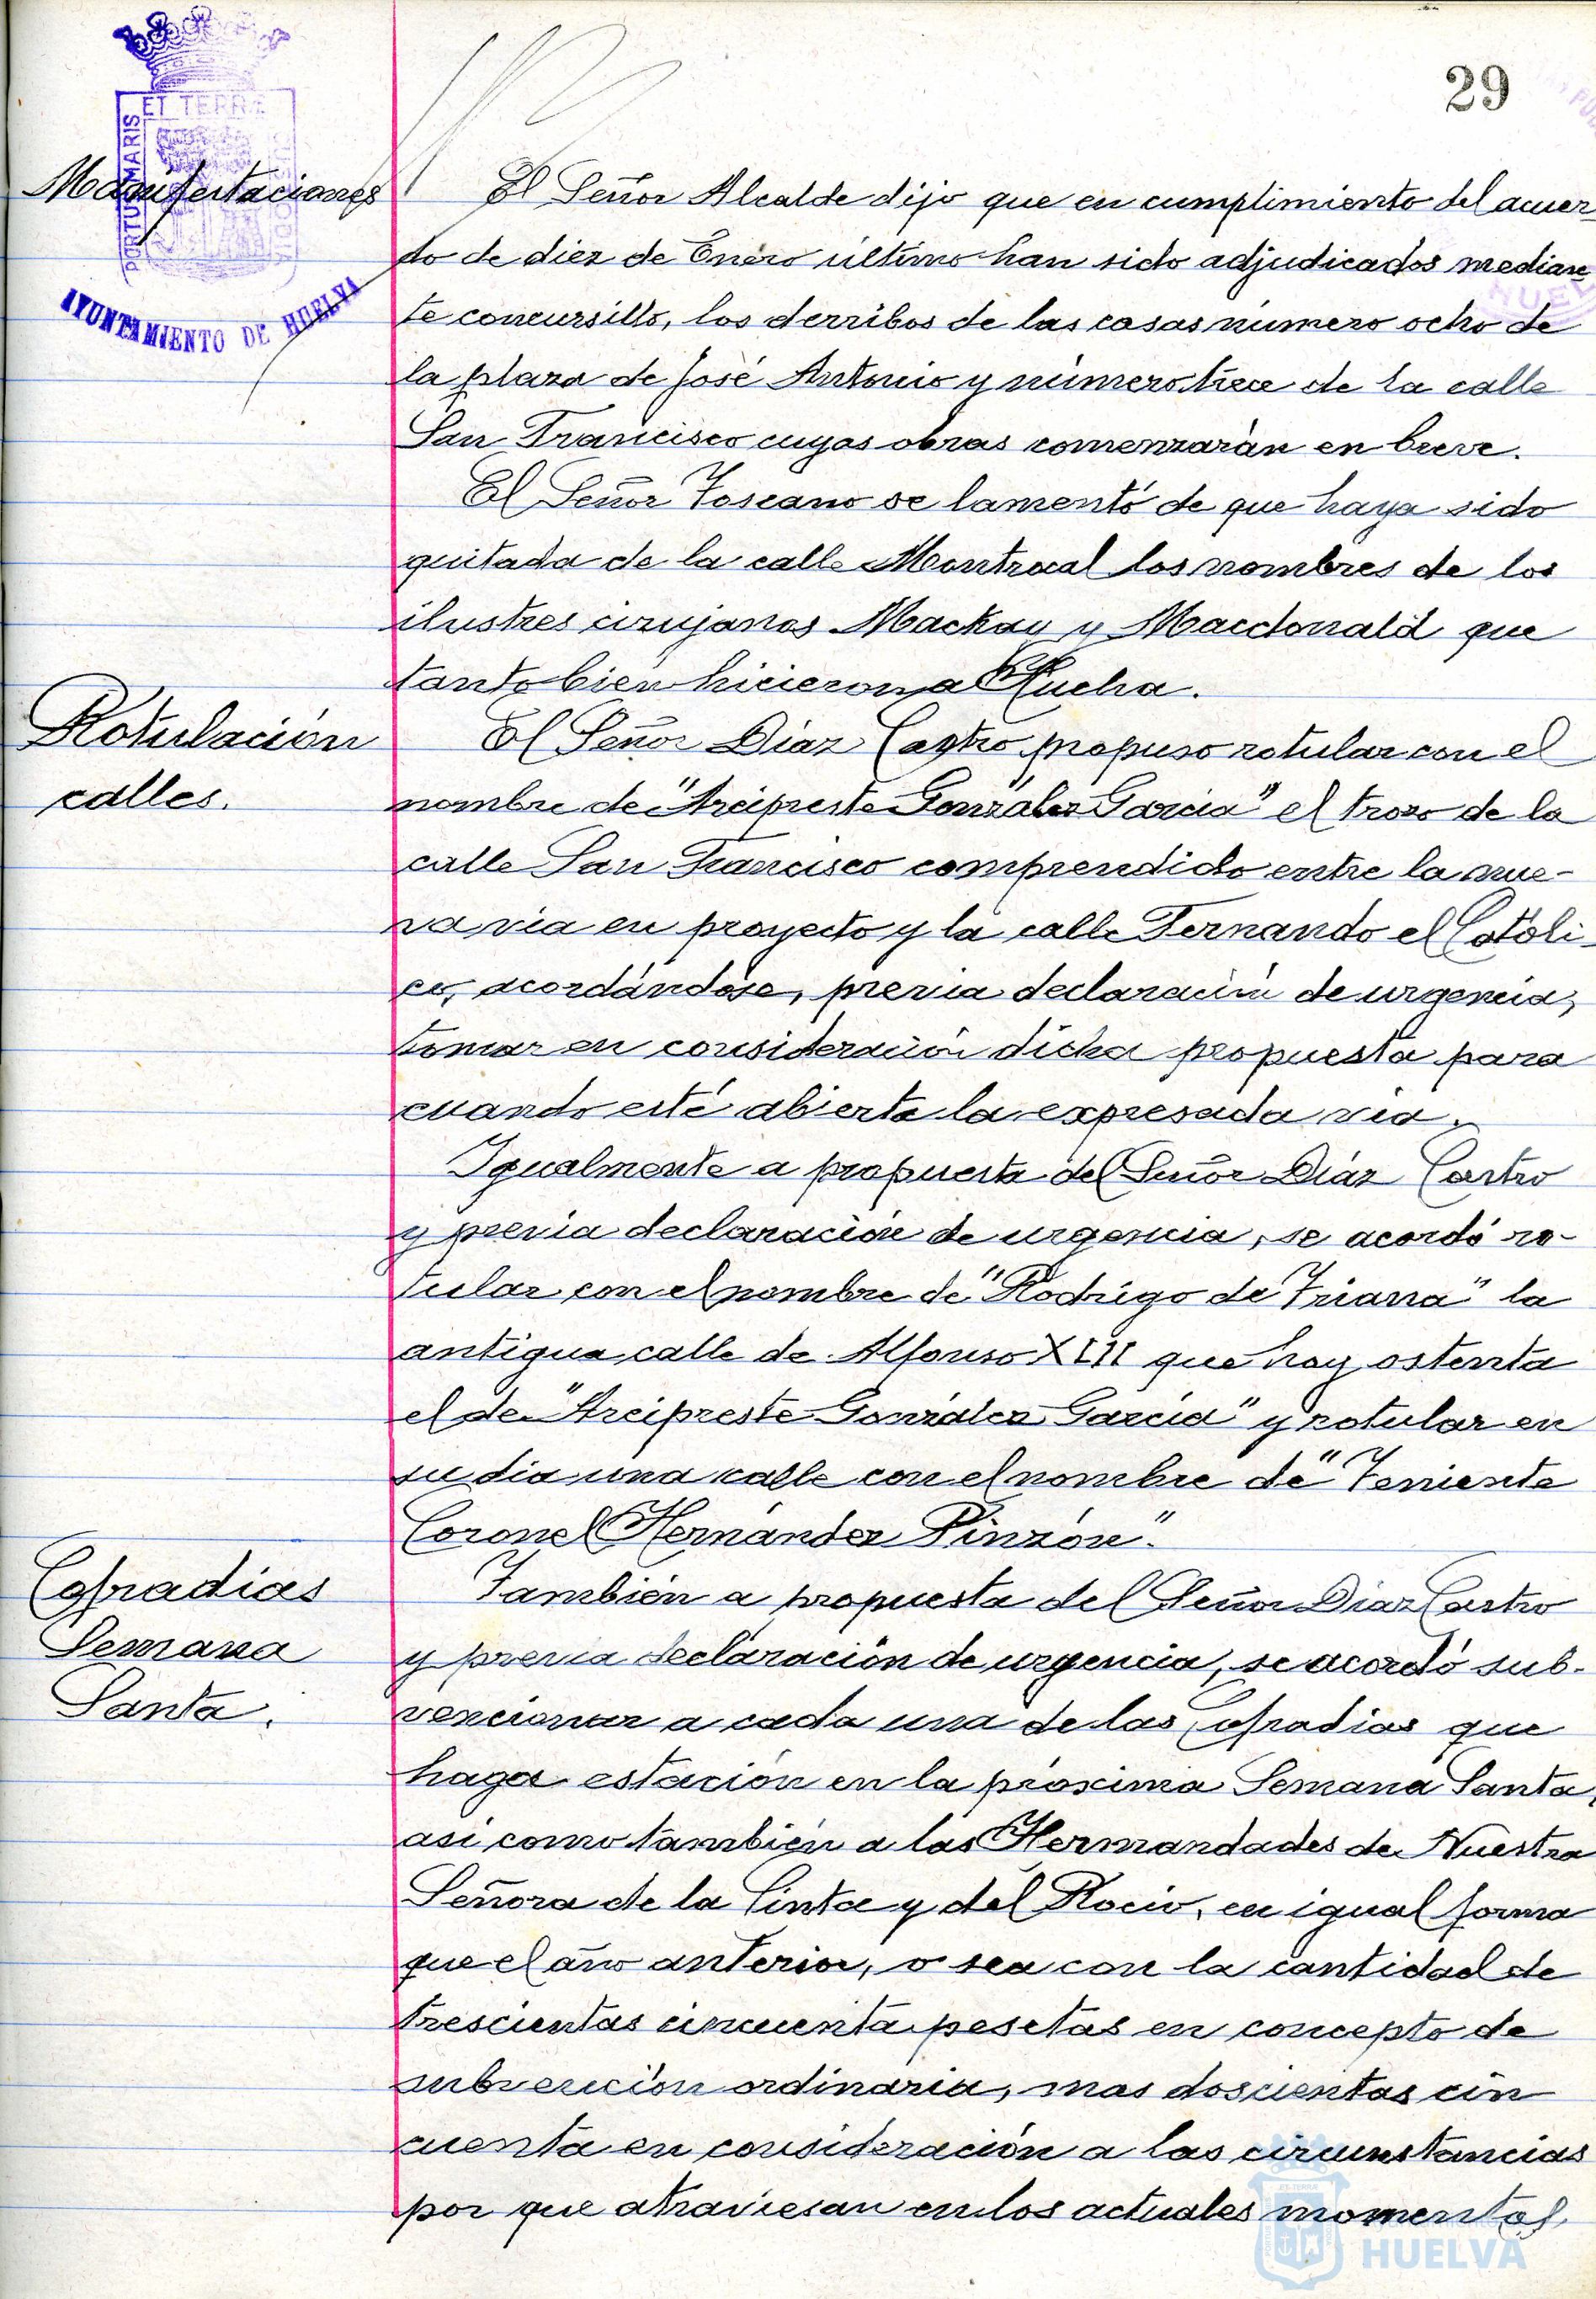 29
ET TERRE
PORTUS MARIS
AYUNTAMIENTO DE HUELVA
Manifestaciones
El Señor Alcalde dijo que en cumplimiento del acuer-
do de diez de Enero último han sido adjudicados median
te concursillo, los derribos de las casas número ocho de
la plaza de José Antonio y número trece de la calle
San Francisco cuyas obras comenzarán en breve.
El Señor Toscano se lamentó de que haya sido
quitada de la calle Montrocal los nombres de los
ilustres cirujanos Mackay y Macdonald que
tanto bien hicieron a Huelva.
Rotulación
calles.
El Señor Díaz Castro propuso rotular con el
nombre de "Arcipreste González García" el trozo de la
calle San Francisco comprendido entre la nue-
va via en proyecto y la calle Fernando el Católi-
co, acordándose, previa declaración de urgencia,
tomar en consideración dicha propuesta para
cuando esté abierta la expresada via.
Igualmente a propuesta del Señor Díaz Castro
y previa declaración de urgencia, se acordó ro-
tular con el nombre de "Rodrigo de Triana" la
antigua calle de Alfonso XIII que hoy ostenta
el de "Arcipreste González García" y rotular en
su dia una calle con el nombre de "Teniente
Coronel Hernández Pinzón".
Cofradias
Semana
Santa.
También a propuesta del Señor Díaz Castro
y previa declaración de urgencia, se acordó sub-
vencionar a cada una de las Cofradias que
haga estación en la próxima Semana Santa,
asi como también a las Hermandades de Nuestra
Señora de la Cinta y del Rocio, en igual forma
que el año anterior, o sea con la cantidad de
trescientas cincuenta pesetas en concepto de
subvención ordinaria, mas doscientas cin
cuenta en consideración a las circunstancias
por que atraviesan en los actuales momentos
HUELVA